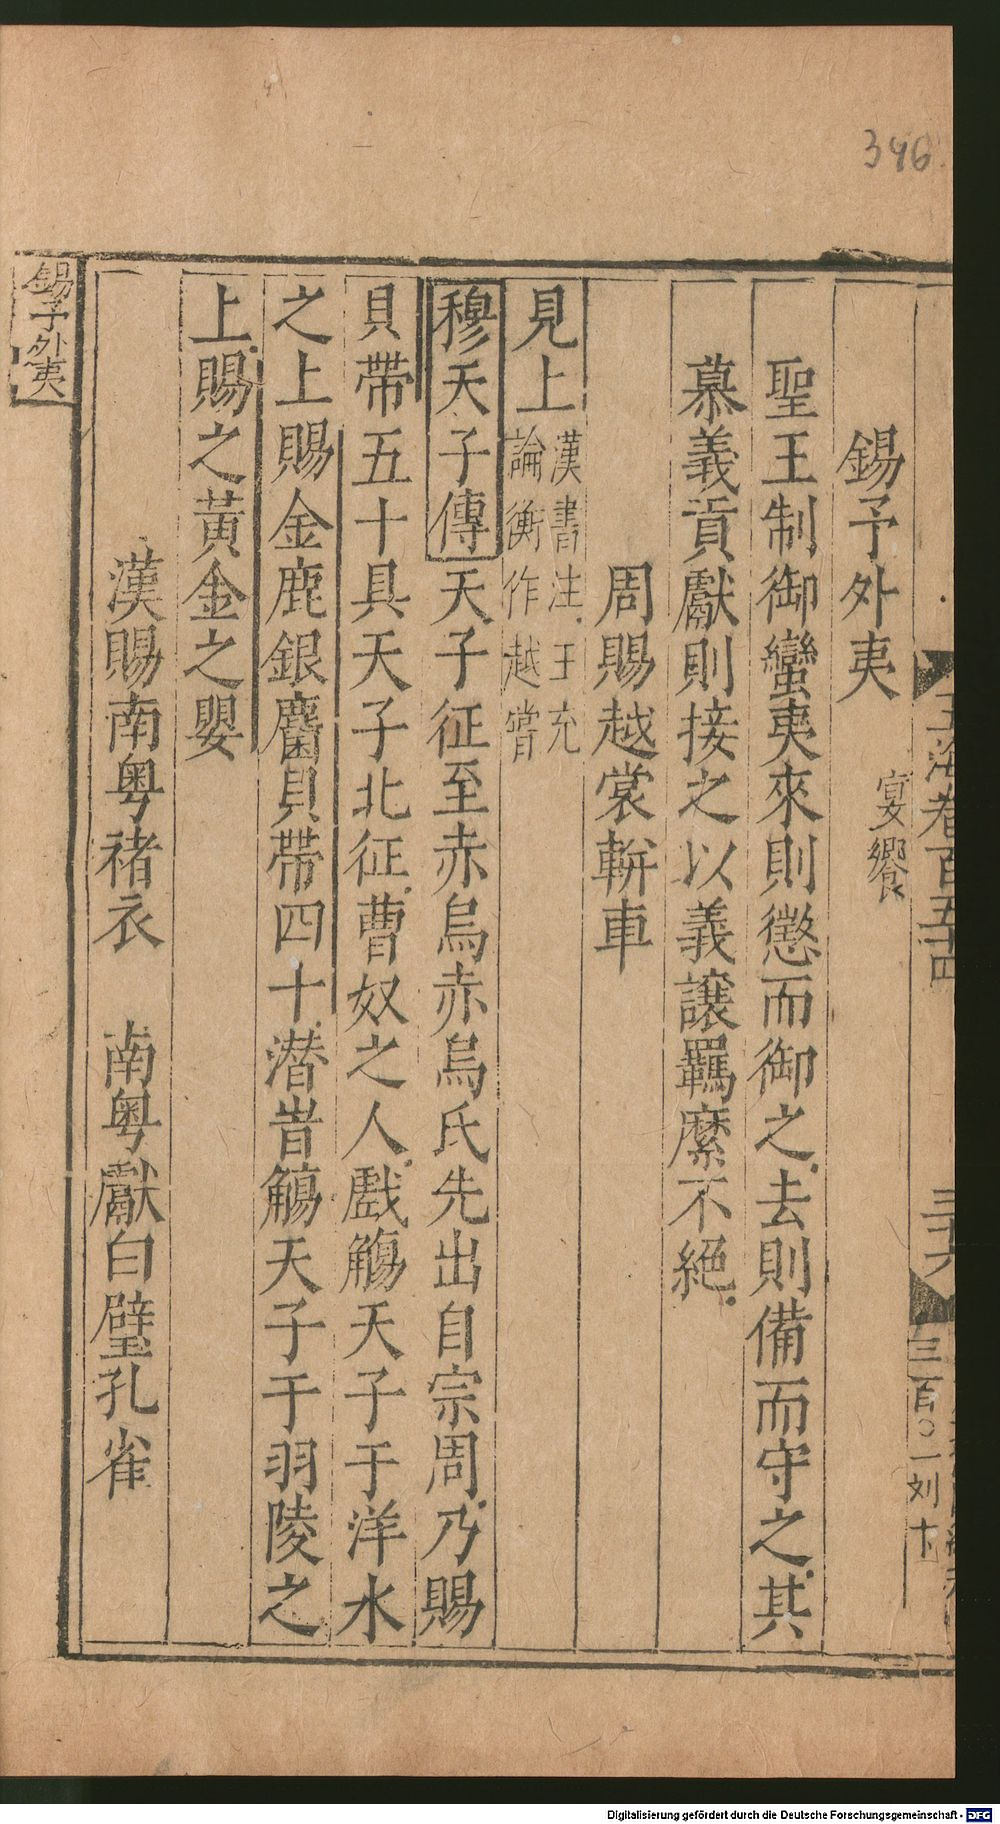 396
玉海卷百五十四
三十六
三百〇一刘卞
錫予外夷 宴饗
聖王制御蠻夷來則懲而御之去則備而守之其
慕義貢獻則接之以義讓羈縻不絕
周賜越裳軿車
見上漢書注王充
論衡作越嘗
穆天子傳天子征至赤烏赤烏氏先出自宗周乃賜
貝帶五十具天子北征曹奴之人戲觴天子于洋水
之上賜金鹿銀麕貝帶四十潜旹觴天子于羽陵之
上賜之黃金之嬰
漢賜南粤褚衣 南粤獻白璧孔雀
錫予外夷
Digitalisierung gefördert durch die Deutsche Forschungsgemeinschaft - DFG